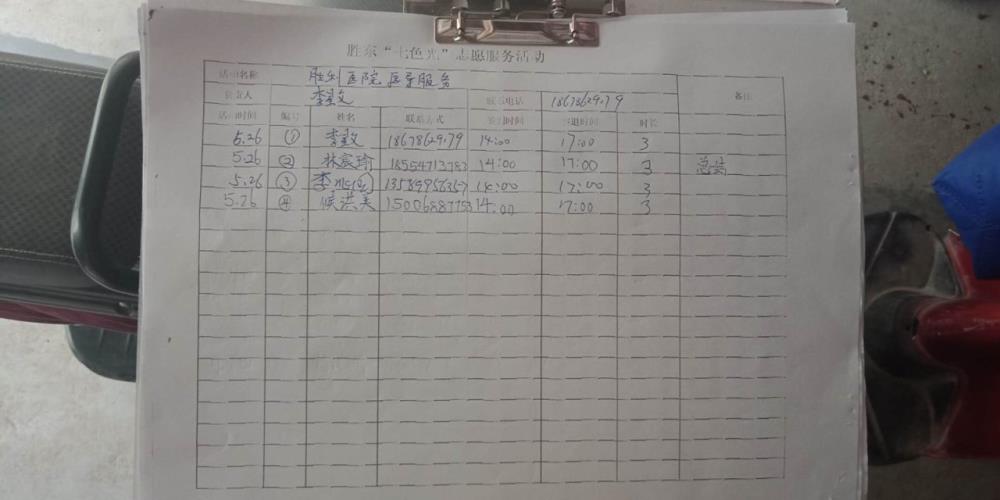 胜东“七色光”志愿服务活动
活动名称 胜利医院医导服务
负责人 李敏 联系电话 18678629.79 备注
活动时间 编号 姓名 联系方式 签到时间 签退时间 时长
5.26 ① 李敏 18678629.79 14:00 17:00 3
5.26 ② 林宸瑜 18554713783 14:00 17:00 3
5.26 ③ 李 13589956357 14:00 17:00 3
5.26 ④ 候洪美 15006887753 14:00 17:00 3